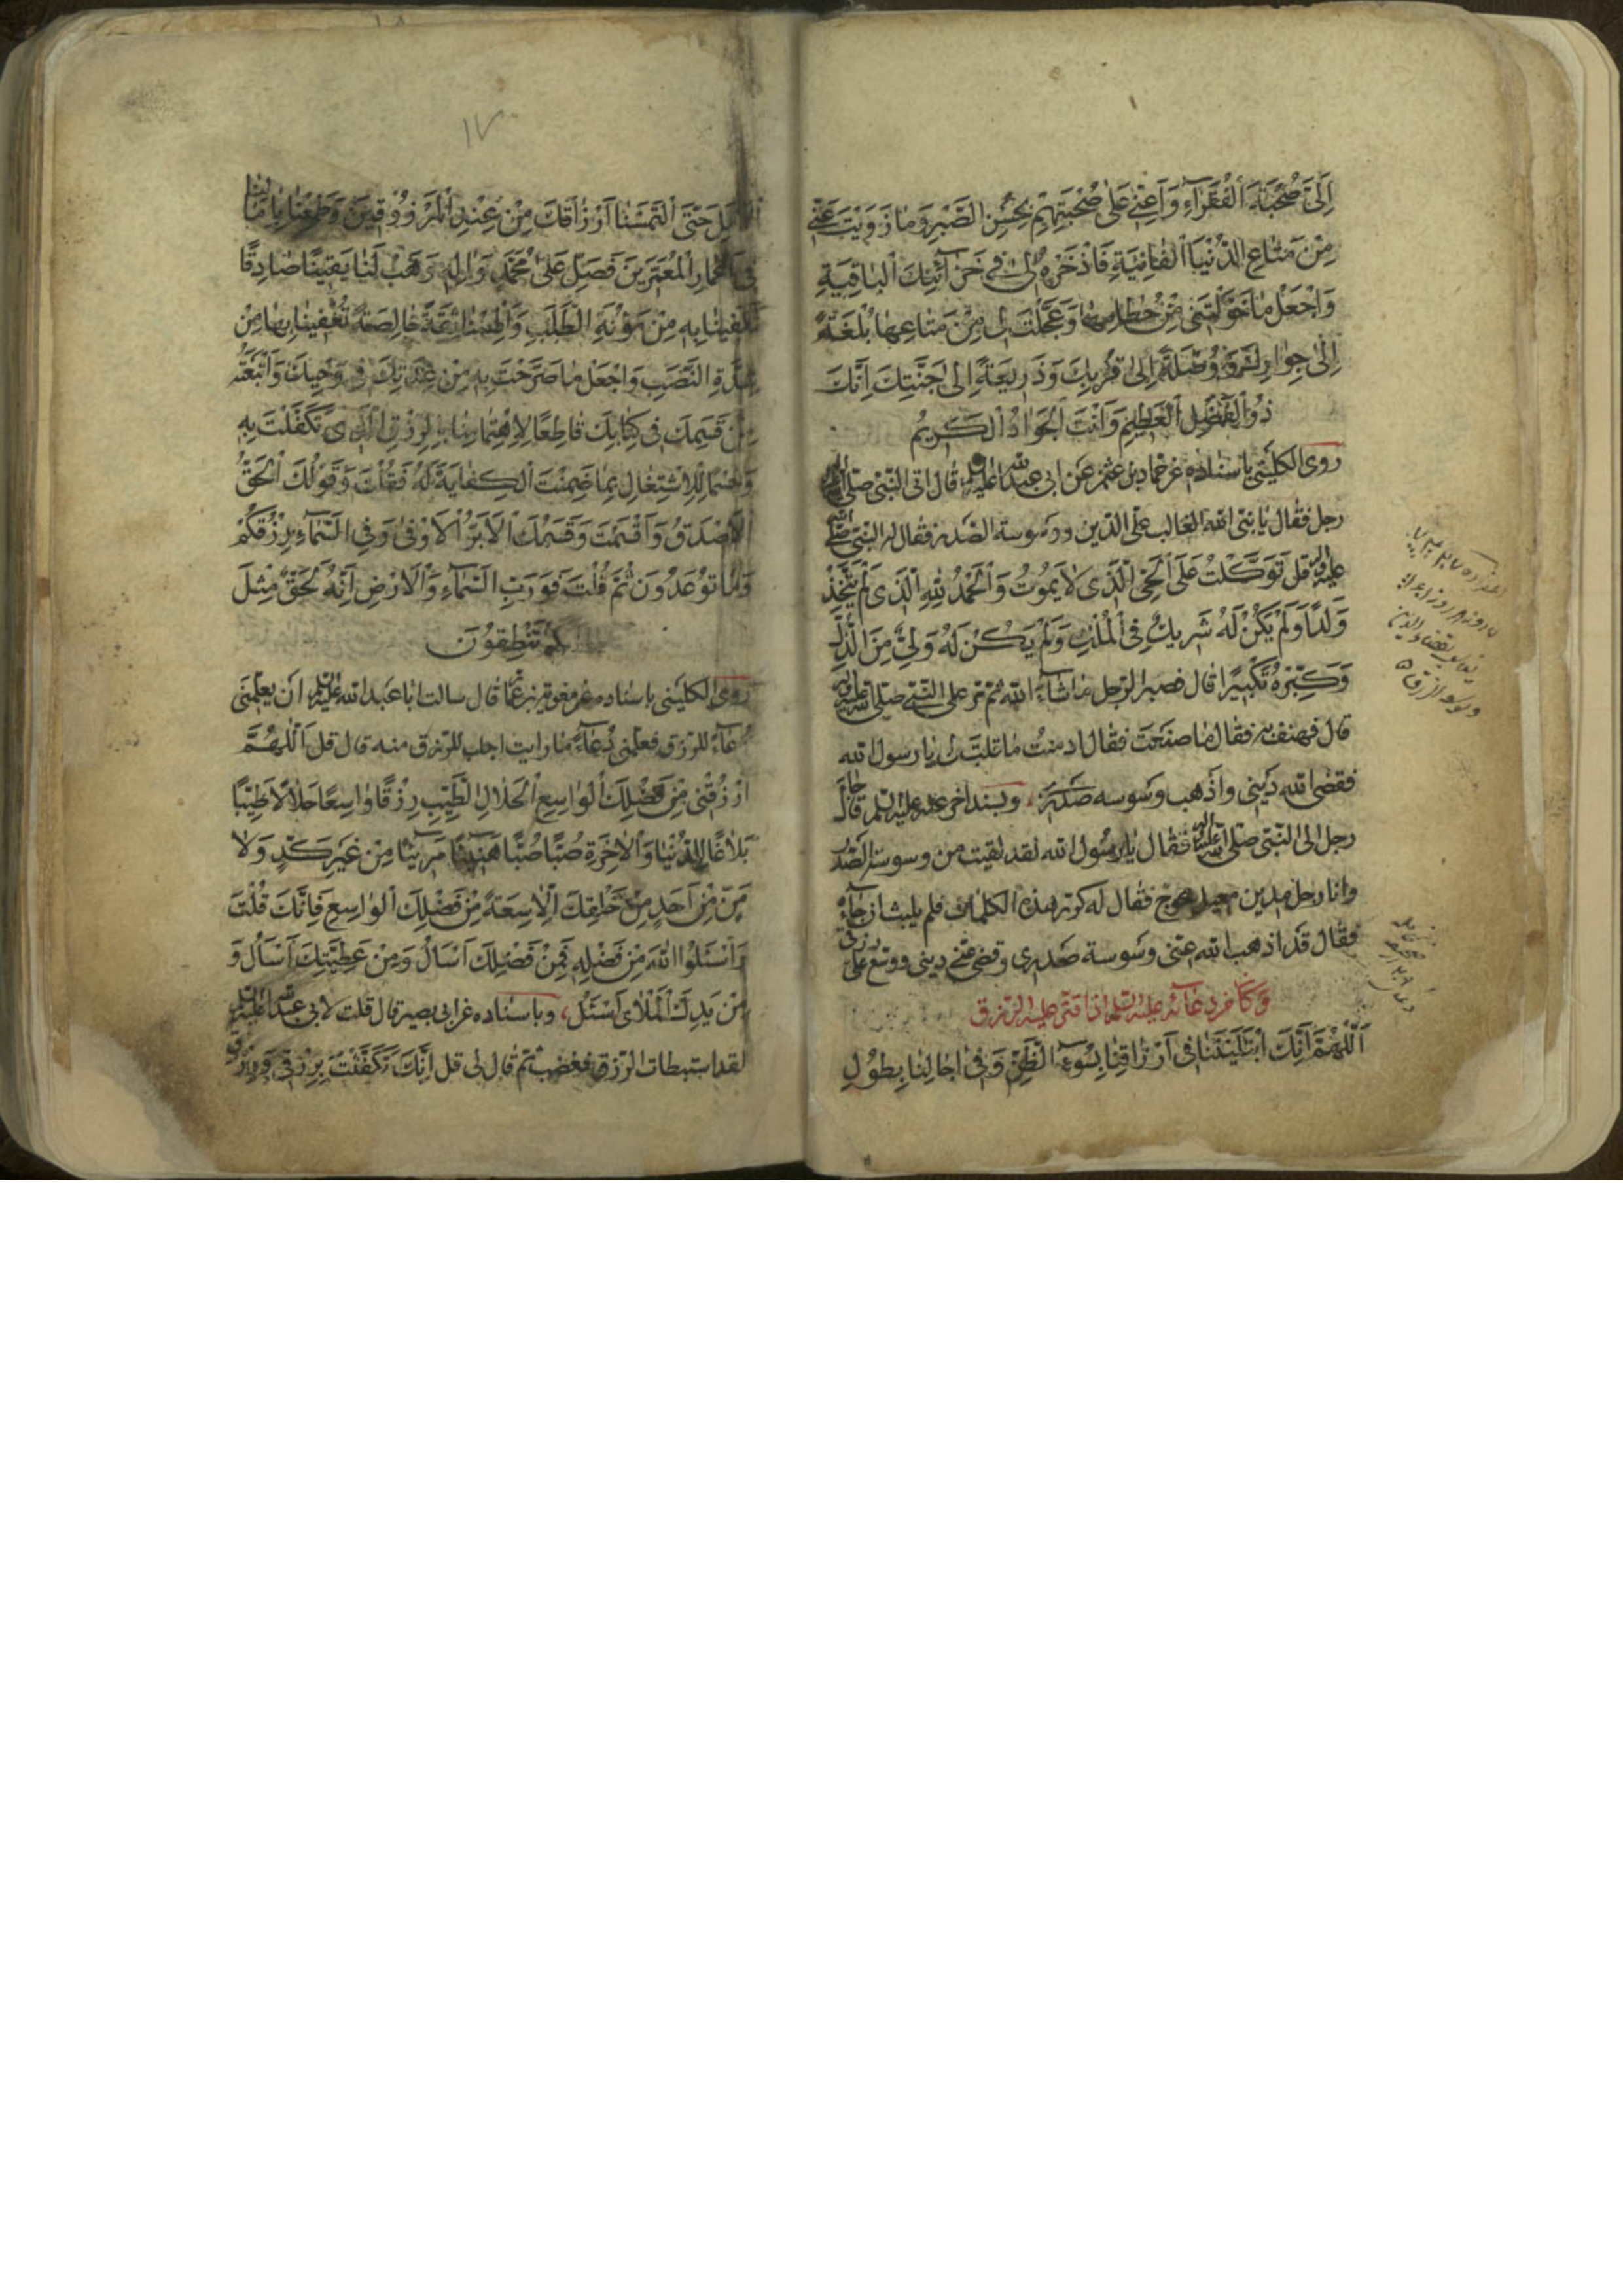 اِلَىَّ صُحْبَةَ الْفُقَرٰآءِ وَاَعِنّى عَلٰى صُحْبَتِهِمْ بِحُسْنِ الصَّبْرِ وَمٰا زَوَيْتَ عَنّى
مِنْ مَتٰاعِ الدُّنْيَا الْفٰانِيَةِ فَاذْخَرْهُ لى فى خَزٰآئِنِكَ الْبٰاقِيَةِ
وَاجْعَلْ مٰا خَوَّلْتَنى مِنْ حُطٰامِهٰا وَعَجَّلْتَ لى مِنْ مَتٰاعِهٰا بُلْغَةً
اِلٰى جِوٰارِكَ وَوُصْلَةً اِلٰى قُرْبِكَ وَذَرِيعَةً اِلٰى جَنَّتِكَ اِنَّكَ
ذُوالْفَضْلِ الْعَظِيمِ وَاَنْتَ الْجَوٰادُ الْكَرِيمُ
روى الكلينى باسناده عن حماد بن عثمن عن ابى عبد الله عليه قال اتى النبى صلى
رجل فقال يا نبى الله الغالب على الدين ووسوسة الصدر فقال له النبى صلى
عليه قل تَوَكَّلْتُ عَلَى الْحَىِّ الَّذى لاٰ يَمُوتُ وَالْحَمْدُ لِلّٰهِ الَّذى لَمْ يَتَّخِذْ
وَلَدًا وَلَمْ يَكُنْ لَهُ شَرِيكٌ فِى الْمُلْكِ وَلَمْ يَكُنْ لَهُ وَلِىٌّ مِنَ الذُّلِّ
وَكَبِّرْهُ تَكْبِيرًا قال فصبر الرجل ما شاء الله ثم مر على النبى صلى الله عليه وآله
قال فهتف به فقال ما صنعت فقال ادمنت ما قلت لى يا رسول الله
فقضى الله دينى واذهب وسوسه صدرى، وبسند اخر عنه عليه السلم قال جاء
رجل الى النبى صلى الله عليه وآله فقال يا رسول الله لقد لقيت من وسوسة الصدر
وانا رجل مدين معيل محوج فقال له كرر هذه الكلمات فلم يلبث ان جاءه
فقال قد اذهب الله عنى وسوسة صدرى وقضى عنى دينى ووسع على رزقى
وكان من دعائه عليه السلم اذا قتر عليه الرزق
اَللّٰهُمَّ اِنَّكَ ابْتَلَيْتَنٰا فى اَرْزٰاقِنٰا بِسُوۤءِ الظَّنِّ وَفى اٰجٰالِنٰا بِطُولِ
١٧
الْاَمَلِ حَتَّى الْتَمَسْنٰا اَرْزٰاقَكَ مِنْ عِنْدِ الْمَرْزُوقِينَ وَطَمِعْنٰا بِاٰمٰالِنٰا
فى اَعْمٰارِ الْمُعَمَّرِينَ فَصَلِّ عَلٰى مُحَمَّدٍ وَاٰلِهِ وَهَبْ لَنٰا يَقِينًا صٰادِقًا
تَكْفِينٰا بِهِ مِنْ مَؤُنَةِ الطَّلَبِ وَاَلْهِمْنٰا ثِقَةً خٰالِصَةً تُعْفِينٰا بِهٰا مِنْ
شِدَّةِ النَّصَبِ وَاجْعَلْ مٰا صَرَّحْتَ بِهِ مِنْ عِدَتِكَ فى وَحْيِكَ وَاَتْبَعْتَهُ
مِنْ قَسَمِكَ فى كِتٰابِكَ قٰاطِعًا لِاهْتِمٰامِنٰا بِالرِّزْقِ الَّذى تَكَفَّلْتَ بِهِ
وَحَسْمًا لِلْاِشْتِغٰالِ بِمٰا ضَمِنْتَ الْكِفٰايَةَ لَهُ فَقُلْتَ وَقَوْلُكَ الْحَقُّ
الْاَصْدَقُ وَاَقْسَمْتَ وَقَسَمُكَ الْاَبَرُّ الْاَوْفٰى وَفِى السَّمٰآءِ رِزْقُكُمْ
وَمٰا تُوعَدُونَ ثُمَّ قُلْتَ فَوَرَبِّ السَّمٰآءِ وَالْاَرْضِ اِنَّهُ لَحَقٌّ مِثْلَ
مٰا اَنَّكُمْ تَنْطِقُونَ
روى الكلينى باسناده عن معوية بن عمار قال سالت ابا عبد الله عليه السلم ان يعلمنى
دعآء للرزق فعلمنى دعآء ما رايت اجلب للرزق منه قال قل اَللّٰهُمَّ
ارْزُقْنى مِنْ فَضْلِكَ الْوٰاسِعِ الْحَلاٰلِ الطَّيِّبِ رِزْقًا وٰاسِعًا حَلاٰلاً طَيِّبًا
بَلاٰغًا لِلدُّنْيٰا وَالْاٰخِرَةِ صَبًّا صَبًّا هَنِيئًا مَرِيئًا مِنْ غَيْرِ كَدٍّ وَلاٰ
مَنٍّ مِنْ اَحَدٍ مِنْ خَلْقِكَ اِلاّٰ سِعَةً مِنْ فَضْلِكَ الْوٰاسِعِ فَاِنَّكَ قُلْتَ
وَاسْئَلُوا اللّٰهَ مِنْ فَضْلِهِ فَمِنْ فَضْلِكَ اَسْأَلُ وَمِنْ عَطِيَّتِكَ اَسْأَلُ وَ
مِنْ يَدِكَ الْمَلْاٰى اَسْئَلُ، وباسناده عن ابى بصير قال قلت لابى عبد الله عليه السلم
لقد استبطات الرزق فغضب ثم قال لى قل اِنَّكَ تَكَفَّلْتَ بِرِزْقى وَرِزْقِ